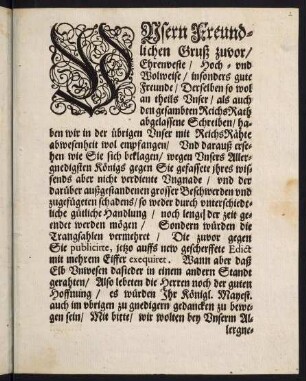 UNsern Freund-
lichen Gruß zuvor/
Ehrenveste / Hoch- und
Wolweise / insonders gute
Freunde / Derselben so wol
an theils Unser / als auch
den gesambten ReichsRath
abgelassene Schreiben / ha-
ben wir in der übrigen Unser mit ReichsRähte
abwesenheit wol empfangen / Und darauß erse-
hen wie Sie sich beklagen / wegen Unsers Aller-
gnedigsten Königs gegen Sie gefassete ihres wis-
sends aber nicht verdiente Ungnade / und der
darüber außgestandenen grosser Beschwerden und
zugefügeten schadens / so weder durch unterschiedt-
liche gütliche Handlung / noch lengz der zeit ge-
endet werden mögen / Sondern würden die
Trangsahlen vermehret / Die zuvor gegen
Sie publicirte, jetzo auffs new gescherffete Edict
mit mehrem Eiffer exequiret. Wann aber daß
Elb Unwesen dasieder in einem andern Standt
gerahten / Also lebeten die Herren noch der guten
Hoffnung / es würden Ihr Königl. Mayest.
auch im übrigen zu gnedigern gedancken zu bewe-
gen sein / Mit bitte / wir wolten bey Unserm Al-
lergne-